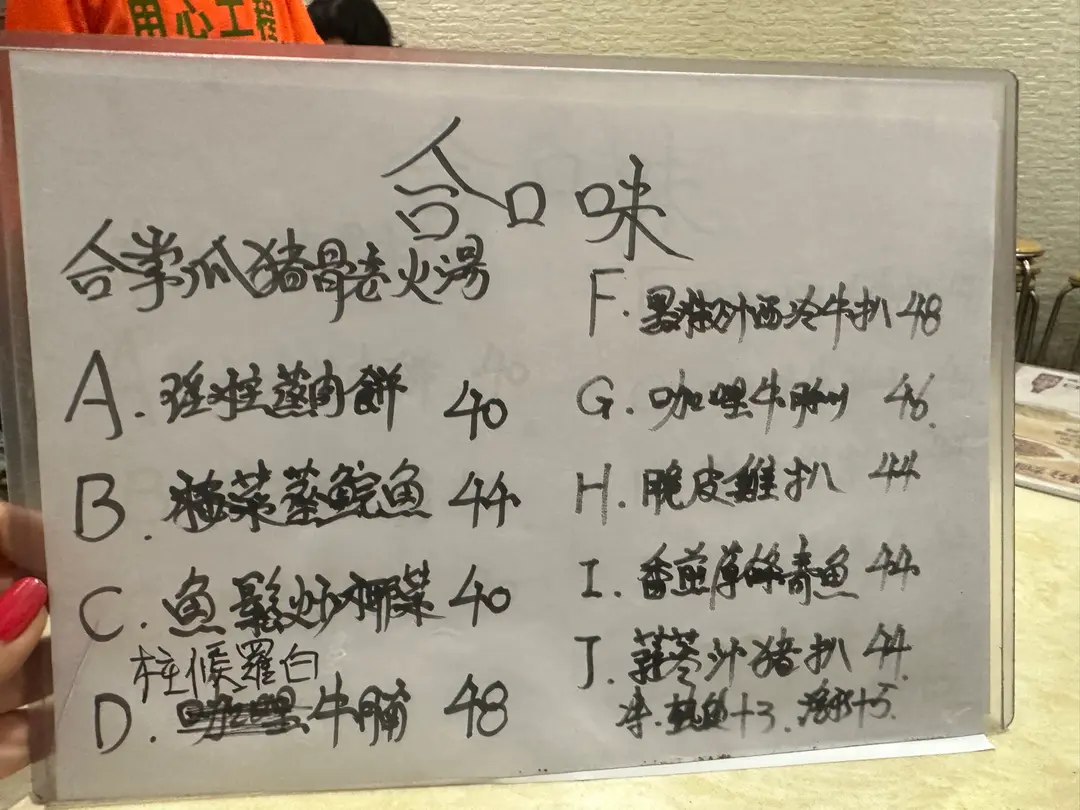 用心工程
合口味
合掌瓜猪骨老火湯
A. 瑤柱蒸肉餅 40
B. 梅菜蒸鯇魚 44
C. 魚鬆炒 菜 40
柱候羅白
D. 牛腩 48
F. 黑椒汁西冷牛扒 48
G. 咖哩牛腩 46.
H. 脆皮雞扒 44
I. 香煎 魚 44
J. 蒜蓉汁猪扒 44
+3. +5.